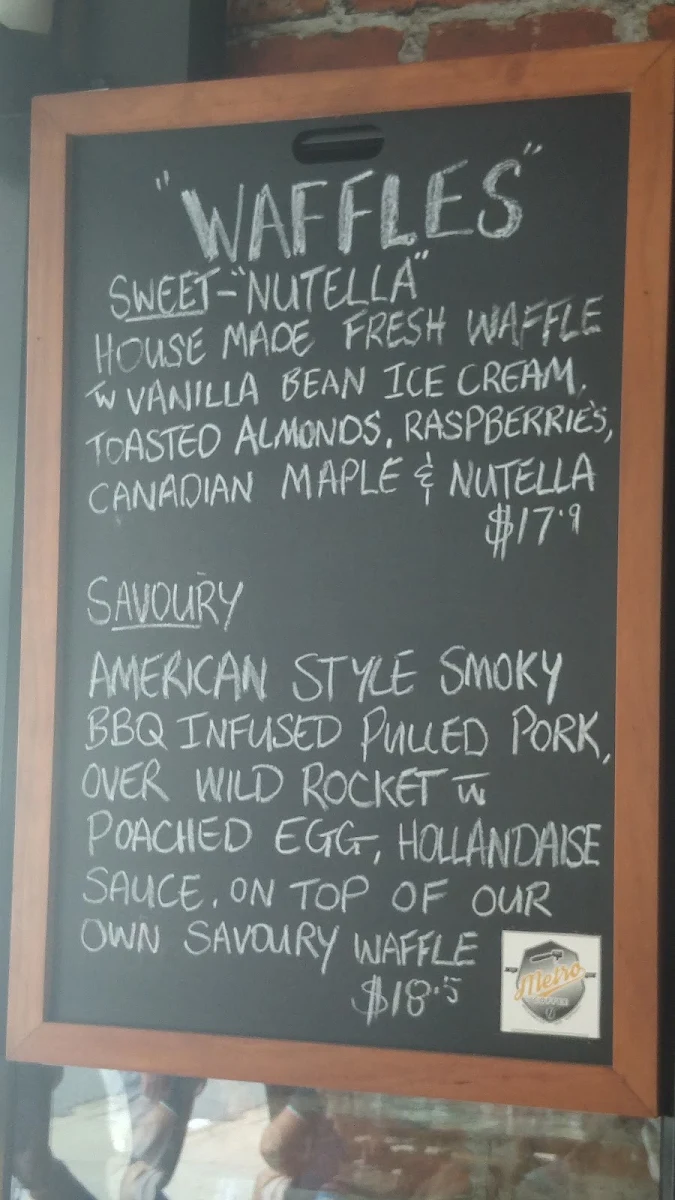 "WAFFLES"
SWEET-"NUTELLA"
HOUSE MADE FRESH WAFFLE
W VANILLA BEAN ICE CREAM,
TOASTED ALMONDS, RASPBERRIE'S,
CANADIAN MAPLE & NUTELLA
$17.9
SAVOURY
AMERICAN STYLE SMOKY
BBQ INFUSED PULLED PORK,
OVER WILD ROCKET W
POACHED EGG, HOLLANDAISE
SAUCE. ON TOP OF OUR
OWN SAVOURY WAFFLE
$18.5
Metro
COFFEE